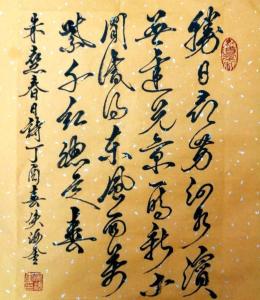 勝日尋芳泗水濱
無邊光景一時新等
閒識得東風面萬
紫千紅總是春
朱熹春日詩丁酉